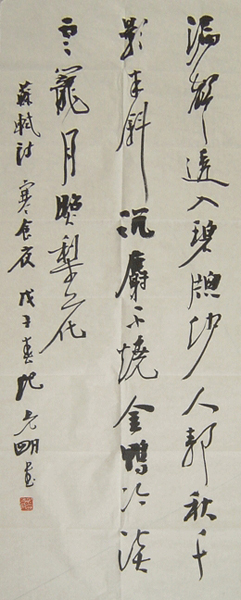 漏聲透入碧牕紗人靜秋千
影半斜沉麝不燒金鴨冷淡
雲籠月照梨花
蘇軾詩 寒食夜 戊子春 明書